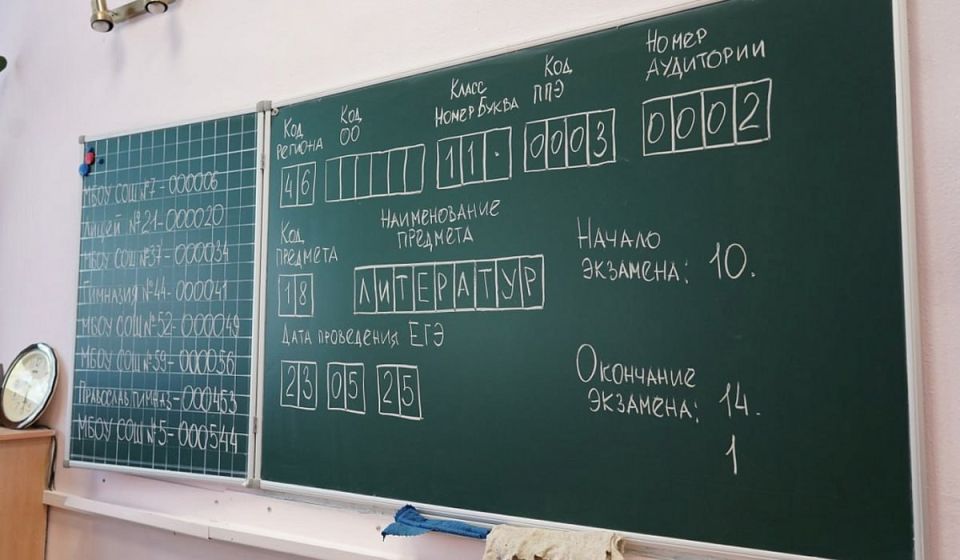 МБОУ СОШ №7-000006
Лицей №21-000020
МБОУ СОШ №37-000034
Гимназия №44-000041
МБОУ СОШ №52-000049
МБОУ СОШ №59-000056
Православ гимназ-000463
МБОУ СОШ №5-000544
Код региона
46
Код ОО
Класс
Номер Буква
11.
Код ППЭ
0003
Номер аудитории
0002
Код предмета
18
Наименование предмета
ЛИТЕРАТУР
Дата проведения ЕГЭ
23 05 25
Начало экзамена: 10.
Окончание экзамена: 14.
1